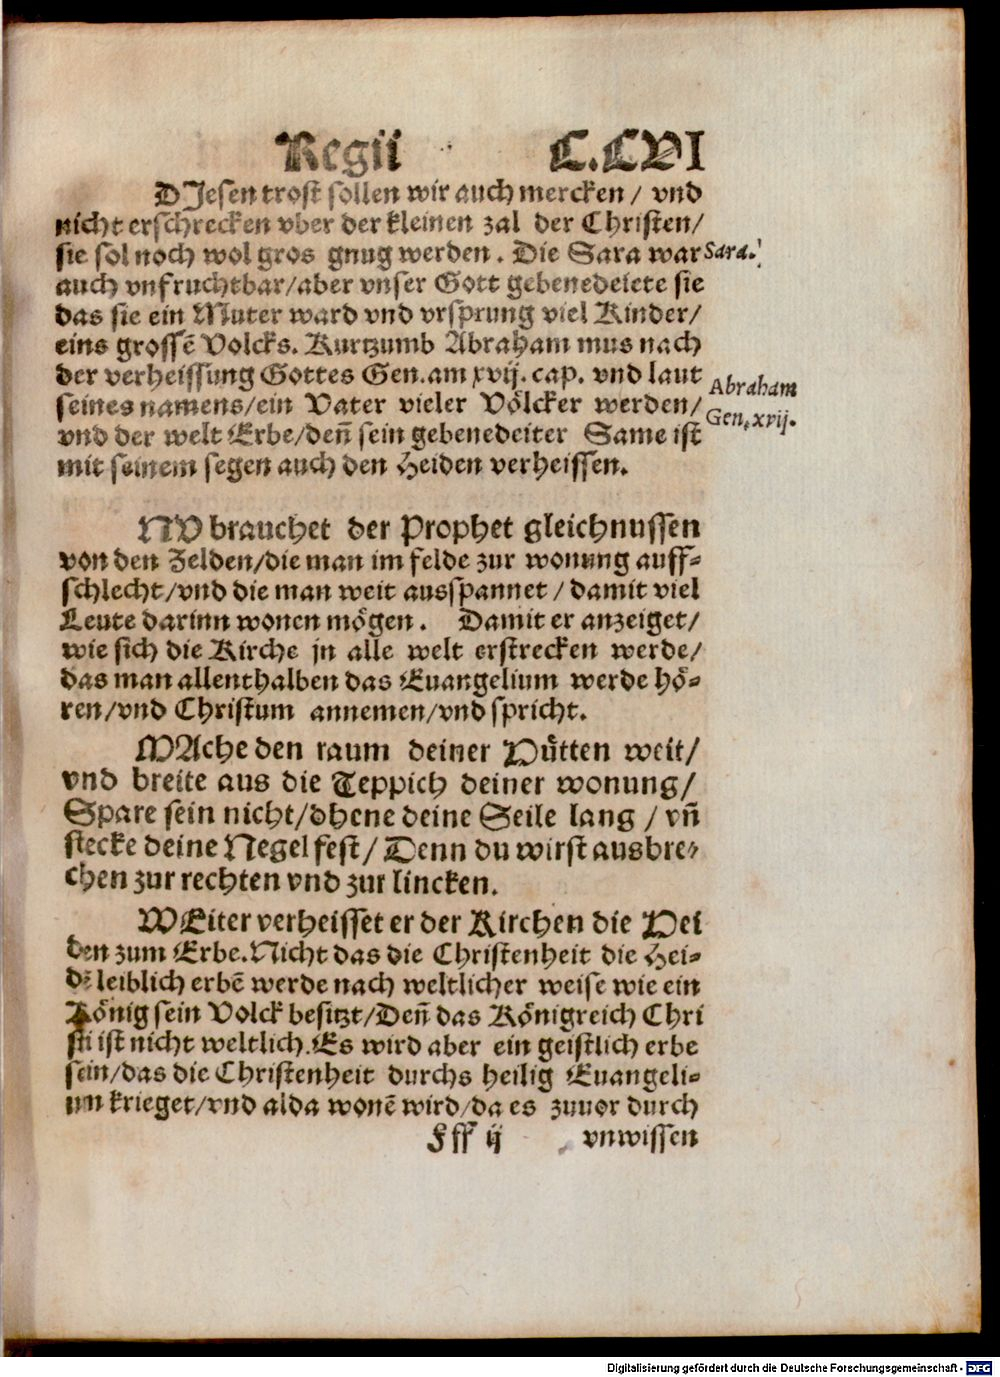 Regii C.CLVI
DJesen trost sollen wir auch mercken / vnd
nicht erschrecken vber der kleinen zal der Christen/
sie sol noch wol gros gnug werden. Die Sara war
Sara.
auch vnfruchtbar/aber vnser Gott gebenedeiete sie
das sie ein Muter ward vnd vrsprung viel Kinder/
eins grossē Volcks. Kurtzumb Abraham mus nach
der verheissung Gottes Gen.am xvij. cap. vnd laut
Abraham
seines namens/ein Vater vieler Völcker werden/
Gen. xvij.
vnd der welt Erbe/deñ sein gebenedeiter Same ist
mit seinem segen auch den Heiden verheissen.
NV brauchet der Prophet gleichnussen
von den Zelden/die man im felde zur wonung auff-
schlecht/vnd die man weit ausspannet / damit viel
Leute darinn wonen mögen. Damit er anzeiget/
wie sich die Kirche jn alle welt erstrecken werde/
das man allenthalben das Euangelium werde hö-
ren/vnd Christum annemen/vnd spricht.
MAche den raum deiner Hütten weit/
vnd breite aus die Teppich deiner wonung/
Spare sein nicht/dhene deine Seile lang / vñ
stecke deine Negel fest/ Denn du wirst ausbre-
chen zur rechten vnd zur lincken.
WEiter verheisset er der Kirchen die Hei
den zum Erbe. Nicht das die Christenheit die Hei-
dē leiblich erbē werde nach weltlicher weise wie ein
König sein Volck besitzt/Deñ das Königreich Chri
sti ist nicht weltlich. Es wird aber ein geistlich erbe
sein/das die Christenheit durchs heilig Euangeli-
um krieget/vnd alda wonē wird/da es zuuor durch
Fff ij vnwissen
Digitalisierung gefördert durch die Deutsche Forschungsgemeinschaft - DFG